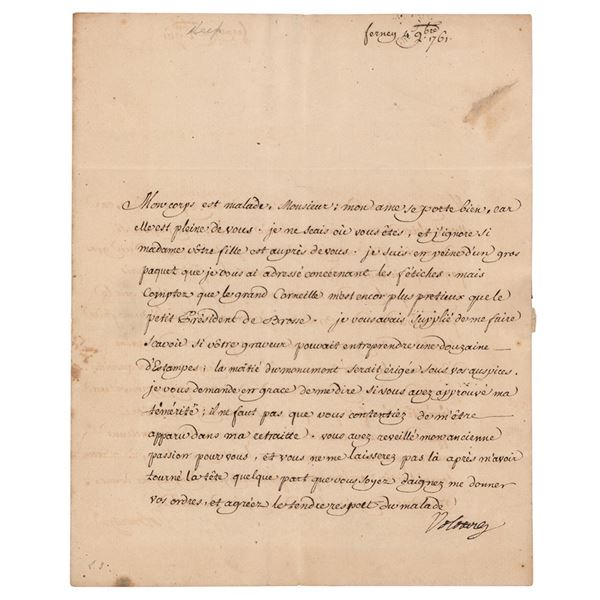 Keep
ferney 4. 9.bre 1761.
Mon corps est malade, Monsieur; mon ame se porte bien, car
elle est pleine de vous. je ne scais où vous êtes, et j'ignore si
madame vôtre fille est auprès de vous. je suis en peine d'un gros
paquet que je vous ai adressé concernant les fétiches. mais
comptez que le grand Corneille m'est encor plus pretieux que le
petit Président de Brosse. je vous avais supplié de me faire
savoir si vôtre graveur pouvait entreprendre une douzaine
d'Estampes; la moitié du monument serait érigée sous vos auspices.
je vous demande en grace de me dire si vous avez approuvé ma
témérité; il ne faut pas que vous contentiez de m'être
apparu dans ma retraitte. vous avez reveillé mon ancienne
passion pour vous, et vous ne me laisserez pas là après m'avoir
tourné la tête quelque part que vous soyez daignez me donner
vos ordres, et agréez le tendre respect du malade
Voltaire